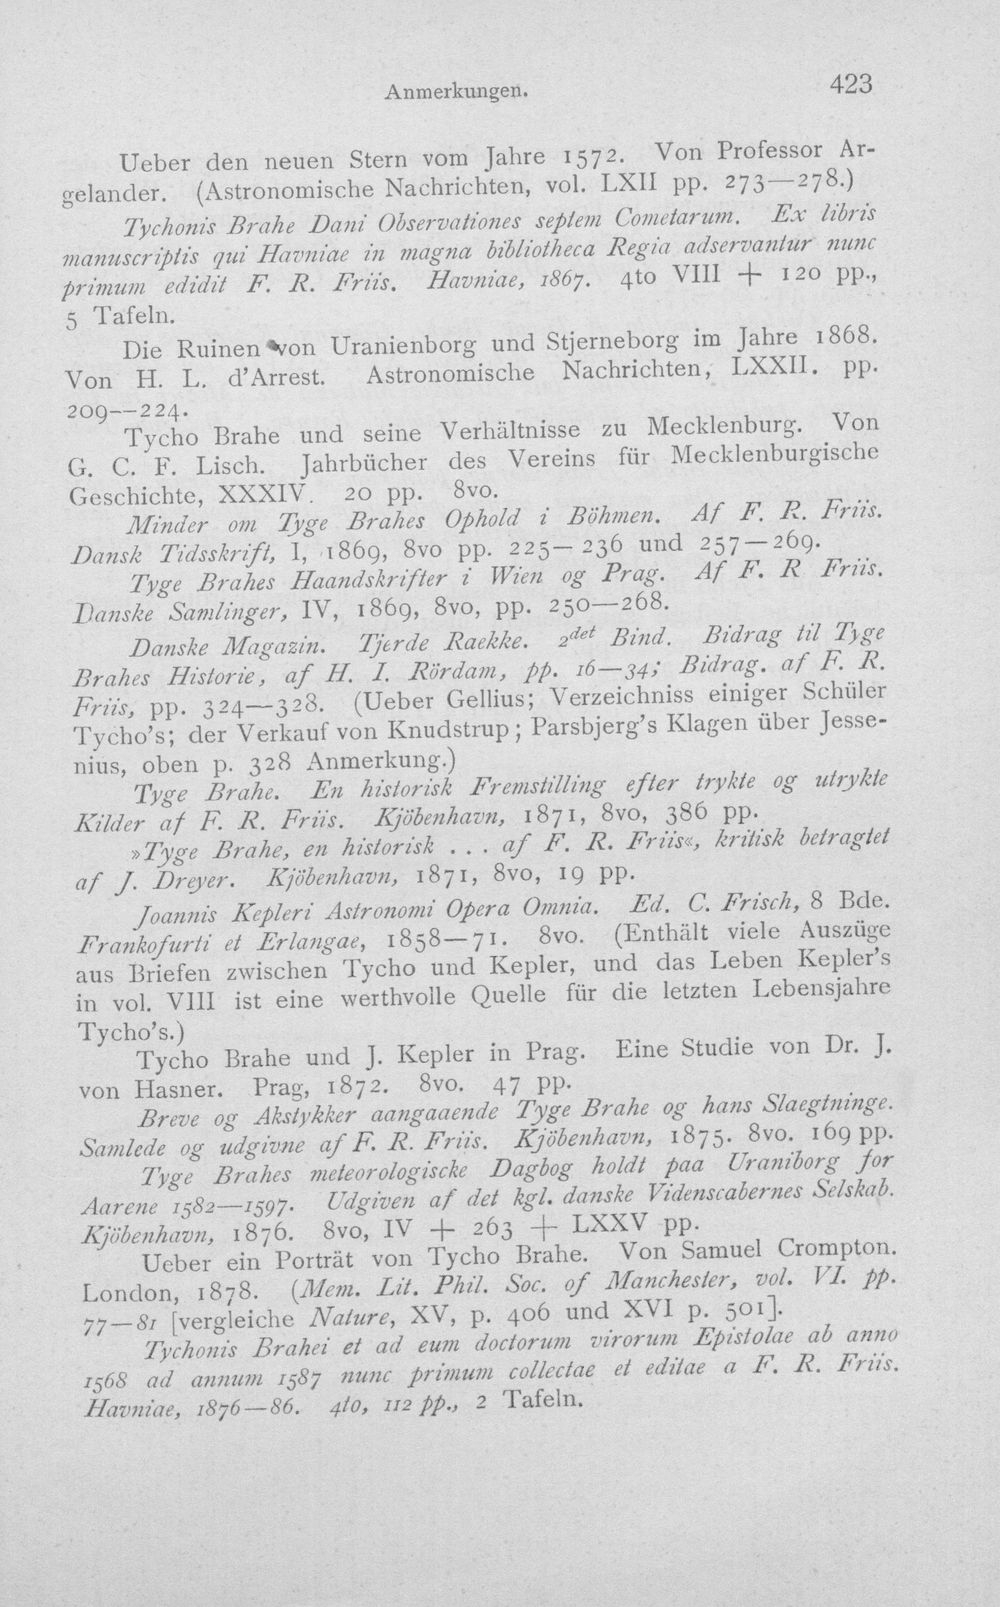 Anmerkungen. 423
Ueber den neuen Stern vom Jahre 1572. Von Professor Ar-
gelander. (Astronomische Nachrichten, vol. LXII pp. 273—278.)
Tychonis Brahe Dani Observationes septem Cometarum. Ex libris
manuscriptis qui Havniae in magna bibliotheca Regia adservantur nunc
primum edidit F. R. Friis. Havniae, 1867. 4to VIII + 120 pp.,
5 Tafeln.
Die Ruinen von Uranienborg und Stjerneborg im Jahre 1868.
Von H. L. d'Arrest. Astronomische Nachrichten, LXXII. pp.
209—224.
Tycho Brahe und seine Verhältnisse zu Mecklenburg. Von
G. C. F. Lisch. Jahrbücher des Vereins für Mecklenburgische
Geschichte, XXXIV. 20 pp. 8vo.
Minder om Tyge Brahes Ophold i Böhmen. Af F. R. Friis.
Dansk Tidsskrift, I, 1869, 8vo pp. 225—236 und 257—269.
Tyge Brahes Haandskrifter i Wien og Prag. Af F. R Friis.
Danske Samlinger, IV, 1869, 8vo, pp. 250—268.
Danske Magazin. Tjerde Raekke. 2det Bind. Bidrag til Tyge
Brahes Historie, af H. I. Rördam, pp. 16—34; Bidrag. af F. R.
Friis, pp. 324—328. (Ueber Gellius; Verzeichniss einiger Schüler
Tycho's; der Verkauf von Knudstrup; Parsbjerg's Klagen über Jesse-
nius, oben p. 328 Anmerkung.)
Tyge Brahe. En historisk Fremstilling efter trykte og utrykte
Kilder af F. R. Friis. Kjöbenhavn, 1871, 8vo, 386 pp.
»Tyge Brahe, en historisk . . . af F. R. Friis«, kritisk betragtet
af J. Dreyer. Kjöbenhavn, 1871, 8vo, 19 pp.
Joannis Kepleri Astronomi Opera Omnia. Ed. C. Frisch, 8 Bde.
Frankofurti et Erlangae, 1858—71. 8vo. (Enthält viele Auszüge
aus Briefen zwischen Tycho und Kepler, und das Leben Kepler's
in vol. VIII ist eine werthvolle Quelle für die letzten Lebensjahre
Tycho's.)
Tycho Brahe und J. Kepler in Prag. Eine Studie von Dr. J.
von Hasner. Prag, 1872. 8vo. 47 pp.
Breve og Akstykker aangaaende Tyge Brahe og hans Slaegtninge.
Samlede og udgivne af F. R. Friis. Kjöbenhavn, 1875. 8vo. 169 pp.
Tyge Brahes meteorologiscke Dagbog holdt paa Uraniborg for
Aarene 1582—1597. Udgiven af det kgl. danske Videnscabernes Selskab.
Kjöbenhavn, 1876. 8vo, IV + 263 + LXXV pp.
Ueber ein Porträt von Tycho Brahe. Von Samuel Crompton.
London, 1878. (Mem. Lit. Phil. Soc. of Manchester, vol. VI. pp.
77—81 [vergleiche Nature, XV, p. 406 und XVI p. 501].
Tychonis Brahei et ad eum doctorum virorum Epistolae ab anno
1568 ad annum 1587 nunc primum collectae et editae a F. R. Friis.
Havniae, 1876—86. 4to, 112 pp., 2 Tafeln.